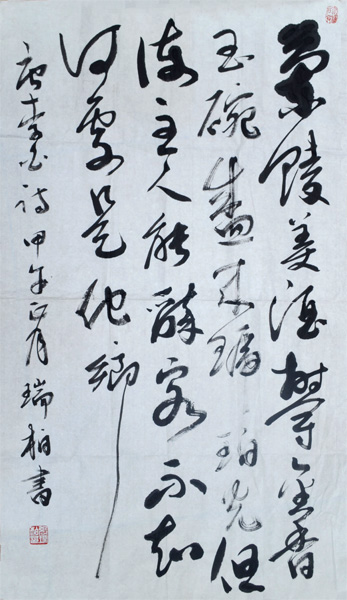 蘭陵美酒鬱金香
玉碗盛来琥珀光但
使主人能醉客不知
何處是他鄉
唐李白詩甲午正月瑞柏書